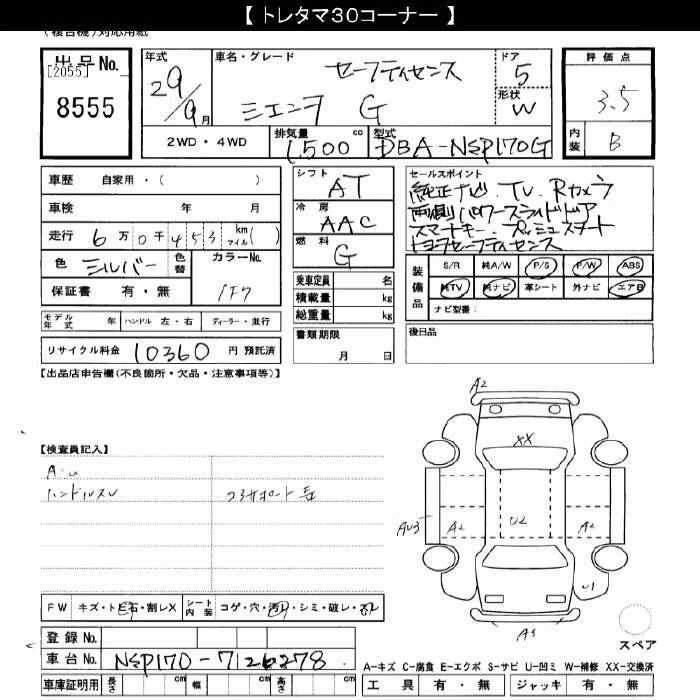 【 トレタマ30コーナー 】
(複合機)対応用紙
出品No.
[2055]
8555
年式
29/9月
車名・グレード
セーフティセンス
シエンタ G
ドア
5
形状
W
評価点
3.5
内装
B
2WD・4WD
排気量
1500 cc
型式
DBA-NSP170G
車歴 自家用・( )
車検 年 月
走行 6万0千453 km マイル( )
色 シルバー 色替
カラーNo.
1F7
保証書 有・無
モデル年式 年 ハンドル 左・右 ディーラー・並行
リサイクル料金 10360 円 預託済
シフト
AT
冷房
AAC
燃料
G
乗車定員 名
積載量 kg
総重量 kg
書類期限
月 日
セールスポイント
純正ナビ、TV、Rカメラ
両側パワースライドドア
スマートキー、プッシュスタート
トヨタセーフティセンス
装備品
S/R 純A/W P/S P/W ABS
純TV 純ナビ 革シート 外ナビ エアB
ナビ型番:
後日品
【出品店申告欄(不良箇所・欠品・注意事項等)】
【検査員記入】
A・U
ハンドルスレ
コアサポート
A2
XX
AU3
A2
U2
A2
U1
A3
スペア
FW キズ・トビ石・割レX
シート内装 コゲ・穴・汚レ・シミ・破レ・スレ
登録No.
車台No. NSP170-7126278
車庫証明用 長さ cm 幅 cm 高さ cm
A-キズ C-腐食 E-エクボ S-サビ U-凹ミ W-補修 XX-交換済
工具 有・無 ジャッキ 有・無